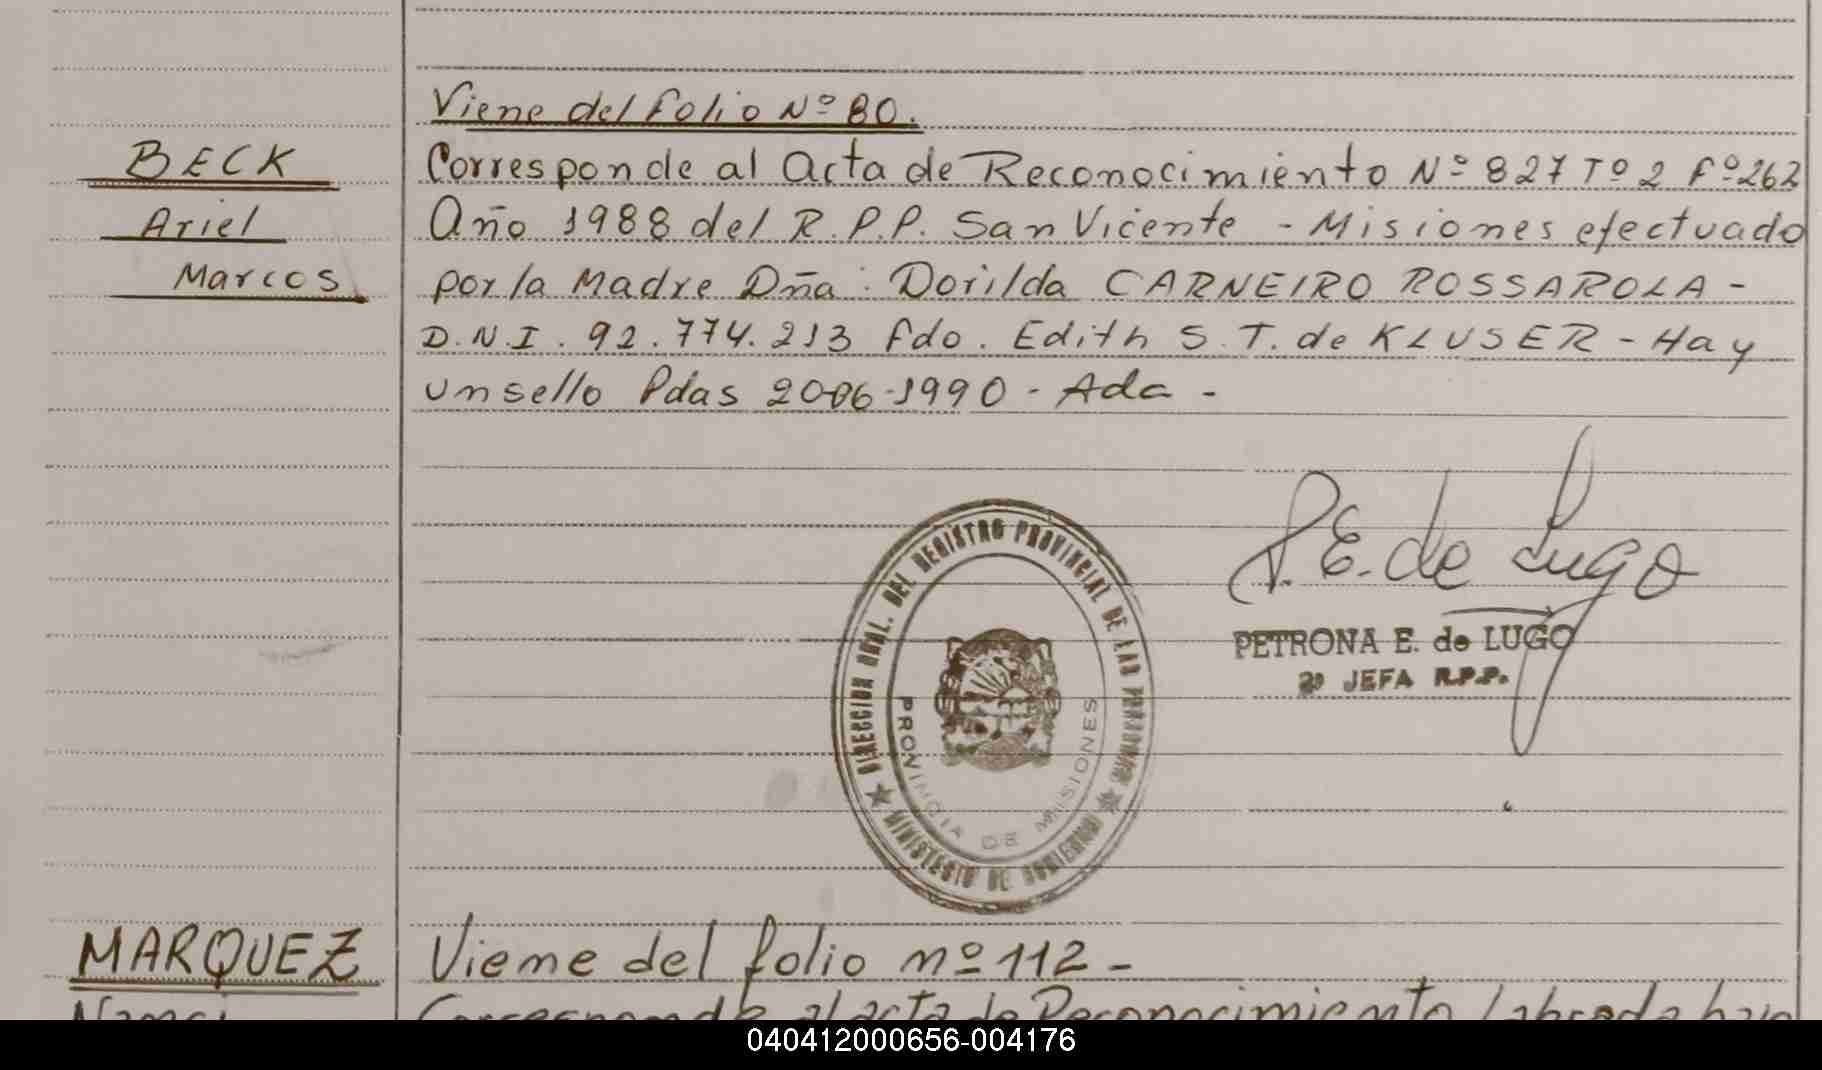 Viene del folio Nº 80.
BECK
Ariel
Marcos
Corresponde al Acta de Reconocimiento Nº 827 Tº 2 Fº 262
Año 1988 del R.P.P. San Vicente - Misiones efectuado
por la Madre Dña: Dorilda CARNEIRO ROSSAROLA -
D.N.I. 92.774.213 fdo. Edith S. T. de KLUSER - Hay
un sello Pdas 20-06-1990 - Ada -
P.E. de Lugo
PETRONA E. de LUGO
2º JEFA R.P.P.
DIRECCION GRAL. DEL REGISTRO PROVINCIAL DE LAS PERSONAS
PROVINCIA DE MISIONES
MINISTERIO DE GOBIERNO
MARQUEZ
Nanci
Viene del folio nº 112 -
Corresponde al acta de Reconocimiento labrada bajo
040412000656-004176